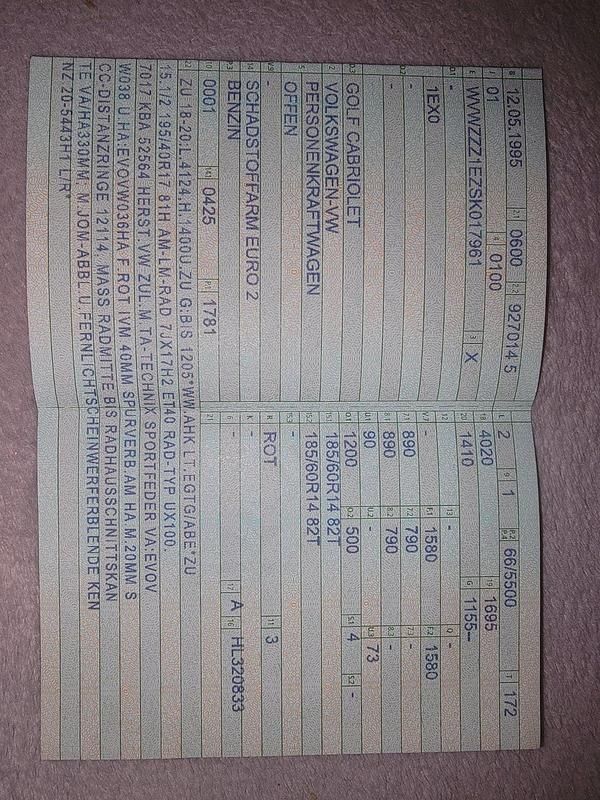 B 12.05.1995 2.1 0600 2.2 927014 5
J 01 4 0100
E WVWZZZ1EZSK017961 3 X
D.1 -
1EX0
D.2 -
-
D.3 GOLF CABRIOLET
2 VOLKSWAGEN-VW
5 PERSONENKRAFTWAGEN
OFFEN
V.9 -
14 SCHADSTOFFARM EURO 2
P.3 BENZIN
10 0001 14.1 0425 P.1 1781
L 2 9 1 P.2 P.4 66/5500 T 172
18 4020 19 1695
20 1410 G 1155--
12 - 13 - Q -
V.7 - F.1 1580 F.2 1580
7.1 890 7.2 790 7.3 -
8.1 890 8.2 790 8.3 -
U.1 90 U.2 - U.3 73
O.1 1200 O.2 500 S.1 4 S.2 -
15.1 185/60R14 82T
15.2 185/60R14 82T
15.3 -
R ROT 11 3
K -
6 - 17 A 16 HL320833
21
22 ZU 18-20:L.4124,H.1400U.ZU G:BIS 1205*WW.AHK LT.EGTG/ABE*ZU
15.1/2 195/40R17 81H AM-LM-RAD 7JX17H2 ET40 RAD-TYP UX100.
7017 KBA 52564 HERST.VW ZUL.M.TA-TECHNIX SPORTFEDER VA:EVOV
W038 U.HA:EVOVW036HA F.ROT IVM 40MM SPURVERB.AM HA M.20MM S
CC-DISTANZRINGE 12114, MASS RADMITTE BIS RADHAUSSCHNITTSKAN
TE VA/HA330MM; M.JOM-ABBL.U.FERNLICHTSCHEINWERFERBLENDE KEN
NZ 20-5443H1 L/R*